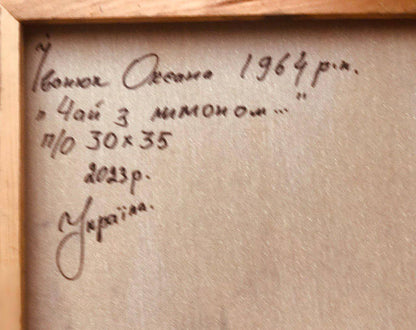 Івонюк Оксана 1964 р.н.
"Чай з лимоном..."
п/о 30х35
2023р.
Україна.